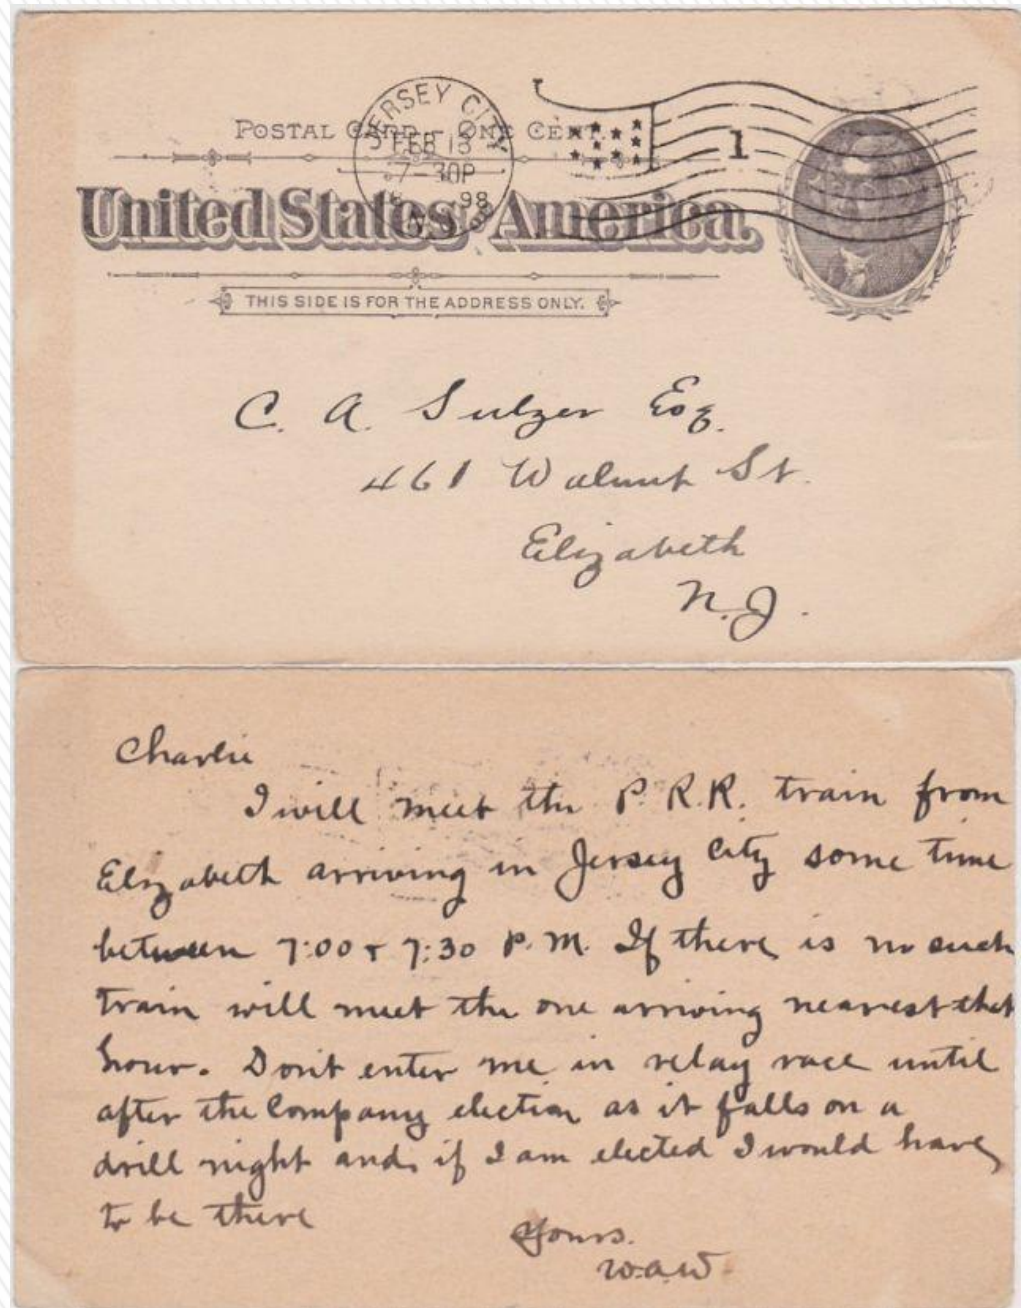 POSTAL CARD - ONE CENT.
JERSEY CITY
FEB 13
7-30P
98
1
United States of America.
THIS SIDE IS FOR THE ADDRESS ONLY.
C. A. Sulzer Esq.
461 Walnut St.
Elizabeth
N.J.
Charlie
I will meet the P.R.R. train from
Elizabeth arriving in Jersey City some time
between 7:00 & 7:30 P.M. If there is no such
train will meet the one arriving nearest that
hour. Don't enter me in relay race until
after the Company election as it falls on a
drill night and if I am elected I would have
to be there
Yours.
W.A.W.